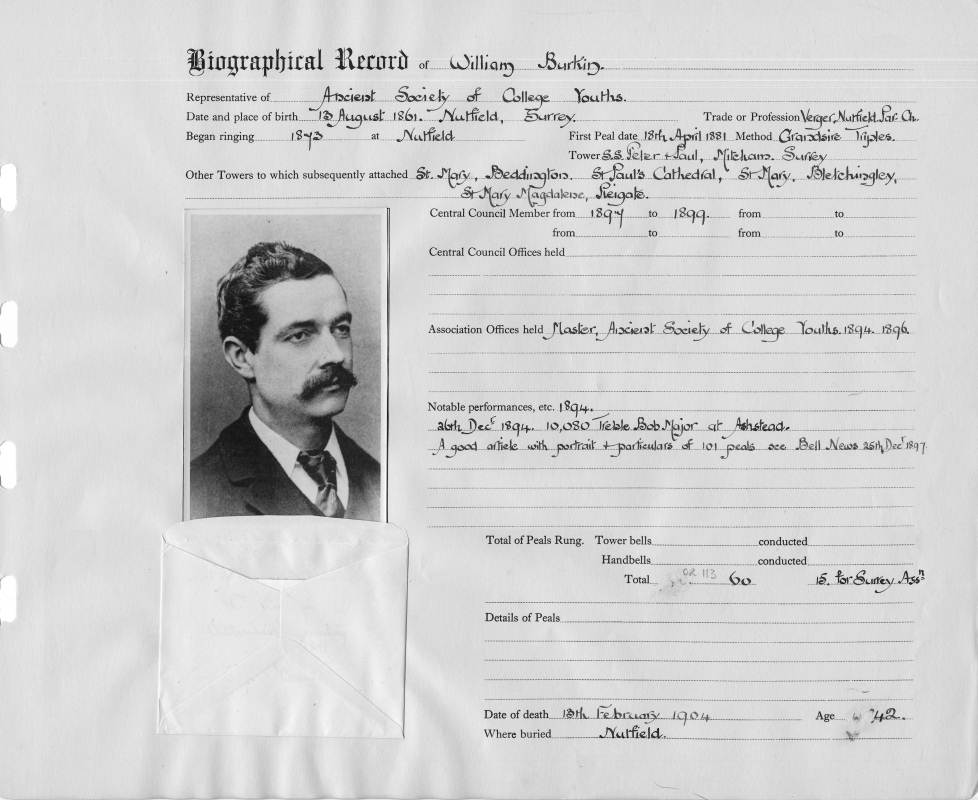 Biographical Record of William Burkin.
Representative of Ancient Society of College Youths.
Date and place of birth 13 August 1861. Nutfield, Surrey. Trade or Profession Verger, Nutfield Par. Ch.
Began ringing 1873 at Nutfield First Peal date 18th April 1881 Method Grandsire Triples.
Tower S.S. Peter & Paul, Mitcham. Surrey
Other Towers to which subsequently attached St. Mary, Beddington. St Paul's Cathedral, St Mary, Bletchingley,
St Mary Magdalene, Reigate.
Central Council Member from 1897 to 1899. from to
from to from to
Central Council Offices held
Association Offices held Master, Ancient Society of College Youths. 1894. 1896.
Notable performances, etc. 1894.
26th Decr 1894. 10,080 Treble Bob Major at Ashstead.
A good article with portrait & particulars of 101 peals see Bell News 25th Decr 1897.
Total of Peals Rung. Tower bells conducted
Handbells conducted
Total OR 113 60 15. for Surrey Assn
Details of Peals
Date of death 13th February 1904 Age 42.
Where buried Nutfield.